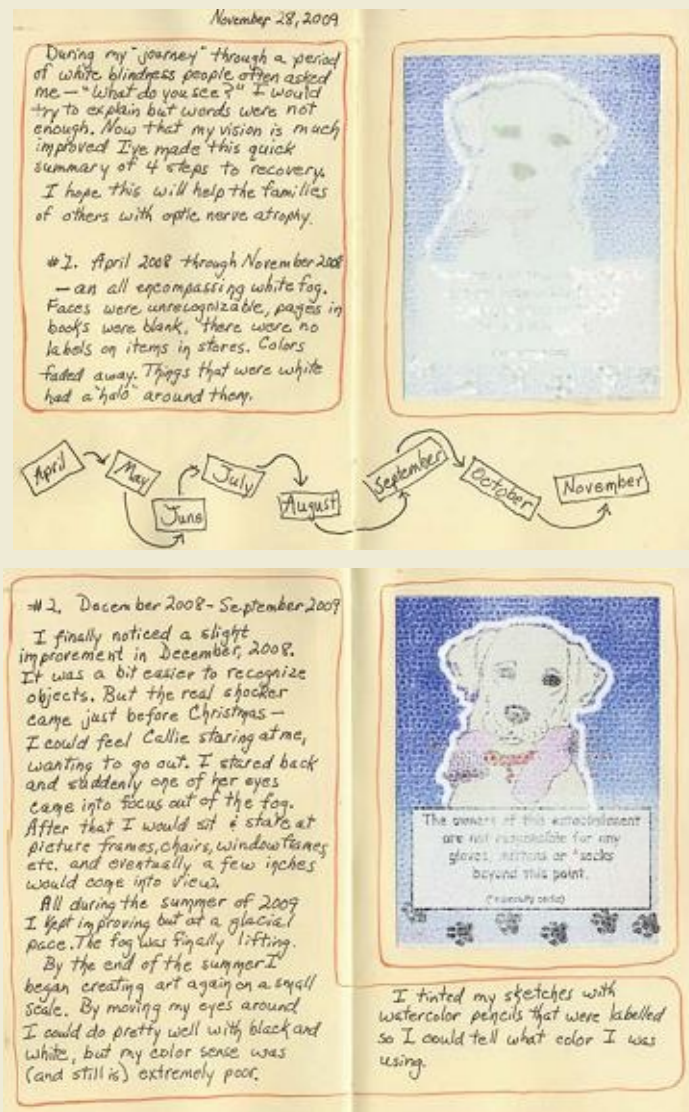 November 28, 2009
During my "journey" through a period
of white blindness people often asked
me — "What do you see?" I would
try to explain but words were not
enough. Now that my vision is much
improved I've made this quick
summary of 4 steps to recovery.
I hope this will help the families
of others with optic nerve atrophy.
#1. April 2008 through November 2008
— an all encompassing white fog.
Faces were unrecognizable, pages in
books were blank, there were no
labels on items in stores. Colors
faded away. Things that were white
had a "halo" around them.
April
May
June
July
August
September
October
November
#2. December 2008 - September 2009
I finally noticed a slight
improvement in December, 2008.
It was a bit easier to recognize
objects. But the real shocker
came just before Christmas —
I could feel Callie staring at me,
wanting to go out. I stared back
and suddenly one of her eyes
came into focus out of the fog.
After that I would sit & stare at
picture frames, chairs, window frames
etc. and eventually a few inches
would come into view.
All during the summer of 2009
I kept improving but at a glacial
pace. The fog was finally lifting.
By the end of the summer I
began creating art again on a small
scale. By moving my eyes around
I could do pretty well with black and
white, but my color sense was
(and still is) extremely poor.
The owners of this establishment
are not responsible for any
gloves, mittens or *socks
beyond this point.
(*especially socks)
I tinted my sketches with
watercolor pencils that were labelled
so I could tell what color I was
using.